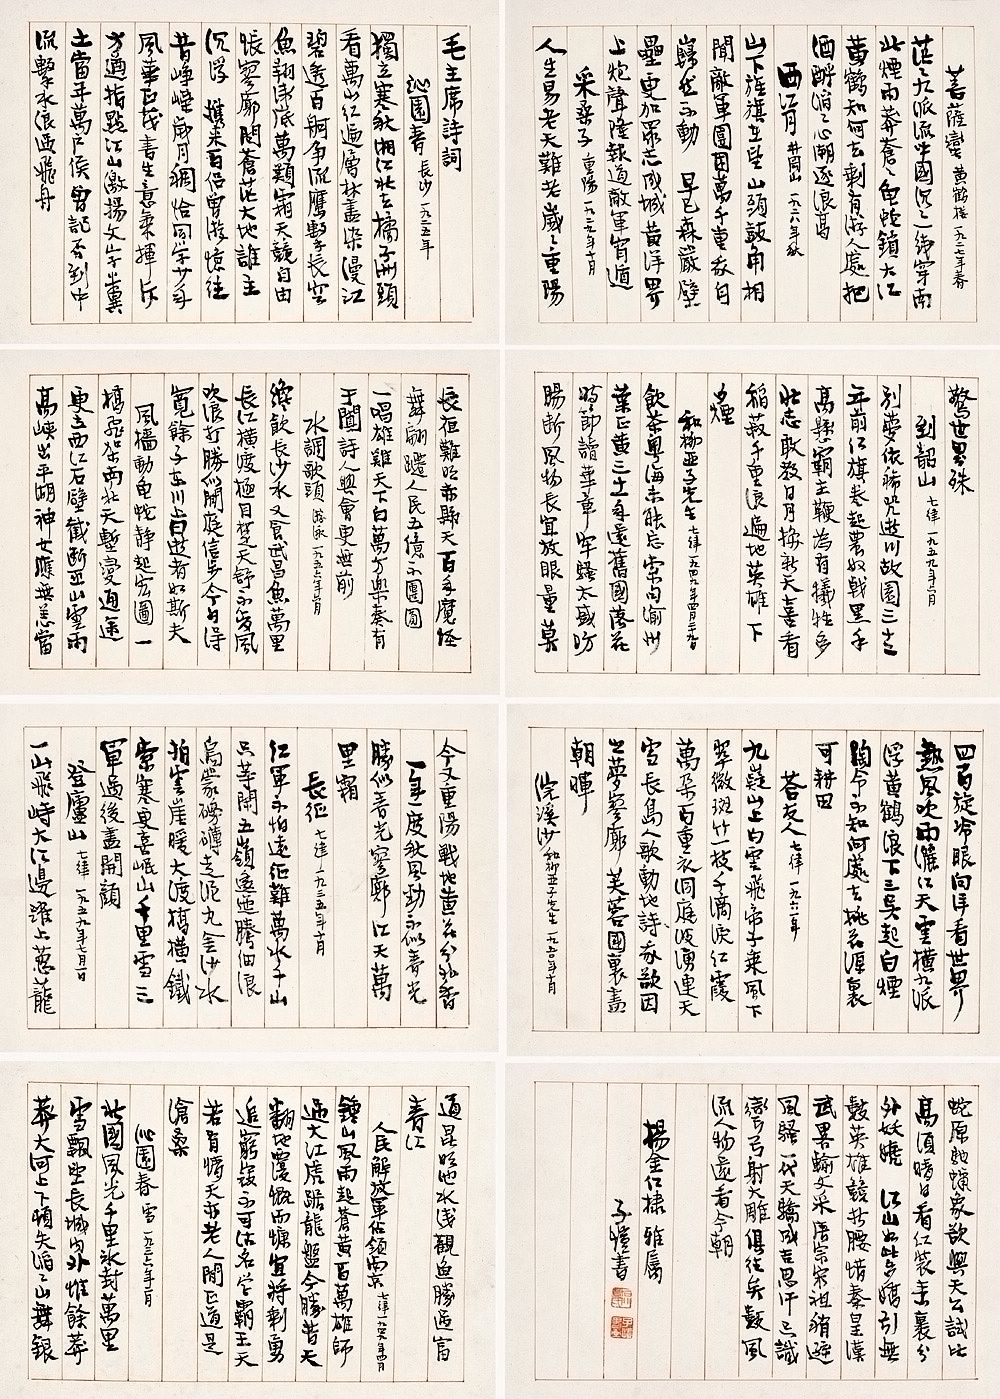 毛主席詩詞
沁園春 長沙 一九二五年
獨立寒秋湘江北去橘子洲頭
看萬山紅遍層林盡染漫江
碧透百舸爭流鷹擊長空
魚翔淺底萬類霜天競自由
悵寥廓問蒼茫大地誰主
沉浮 攜來百侶曾游憶往
昔崢嶸歲月稠恰同學少年
風華正茂書生意氣揮斥
方遒指點江山激揚文字糞
土當年萬戶侯曾記否到中
流擊水浪遏飛舟
菩薩蠻 黃鶴樓 一九二七年春
茫茫九派流中國沉沉一線穿南
北煙雨莽蒼蒼龜蛇鎖大江
黃鶴知何去剩有游人處把
酒酹滔滔心潮逐浪高
西江月 井岡山 一九二八年秋
山下旌旗在望山頭鼓角相
聞敵軍圍困萬千重我自
巋然不動 早已森嚴壁
壘更加眾志成城黃洋界
上炮聲隆報道敵軍宵遁
采桑子 重陽 一九二九年十月
人生易老天難老歲歲重陽
長夜難明赤縣天百年魔怪
舞翩躚人民五億不團圓
一唱雄雞天下白萬方樂奏有
于闐詩人興會更無前
水調歌頭 游泳 一九五六年六月
纔飲長沙水又食武昌魚萬里
長江橫渡極目楚天舒不管風
吹浪打勝似閒庭信步今日得
寬餘子在川上曰逝者如斯夫
風檣動龜蛇靜起宏圖一
橋飛架南北天塹變通途
更立西江石壁截斷巫山雲雨
高峽出平湖神女應無恙當
驚世界殊
到韶山 七律 一九五九年六月
別夢依稀咒逝川故園三十二
年前紅旗卷起農奴戟黑手
高懸霸主鞭為有犧牲多
壯志敢教日月換新天喜看
稻菽千重浪遍地英雄下
夕煙
和柳亞子先生 七律 一九四九年四月二十九日
飲茶粵海未能忘索句渝州
葉正黃三十一年還舊國落花
時節讀華章牢騷太盛防
腸斷風物長宜放眼量莫
今又重陽戰地黃花分外香
一年一度秋風勁不似春光
勝似春光寥廓江天萬
里霜
長征 七律 一九三五年十月
紅軍不怕遠征難萬水千山
只等閒五嶺逶迤騰細浪
烏蒙磅礴走泥丸金沙水
拍雲崖暖大渡橋橫鐵
索寒更喜岷山千里雪三
軍過後盡開顏
登廬山 七律 一九五九年七月一日
一山飛峙大江邊躍上葱蘢
四百旋冷眼向洋看世界
熱風吹雨灑江天雲橫九派
浮黃鶴浪下三吳起白煙
陶令不知何處去桃花源裏
可耕田
答友人 七律 一九六一年
九嶷山上白雲飛帝子乘風下
翠微斑竹一枝千滴淚紅霞
萬朵百重衣洞庭波湧連天
雪長島人歌動地詩我欲因
之夢寥廓芙蓉國裏盡
朝暉
浣溪沙 和柳亞子先生 一九五〇年十月
道昆明池水淺觀魚勝過富
春江
人民解放軍佔領南京 七律 一九四九年四月
鍾山風雨起蒼黃百萬雄師
過大江虎踞龍盤今勝昔天
翻地覆慨而慷宜將剩勇
追窮寇不可沽名學霸王天
若有情天亦老人間正道是
滄桑
沁園春 雪 一九三六年二月
北國風光千里冰封萬里
雪飄望長城內外惟餘莽
莽大河上下頓失滔滔山舞銀
蛇原馳蠟象欲與天公試比
高須晴日看紅裝素裹分
外妖嬈 江山如此多嬌引無
數英雄競折腰惜秦皇漢
武略輸文采唐宗宋祖稍遜
風騷一代天驕成吉思汗只識
彎弓射大雕俱往矣數風
流人物還看今朝
楊金仁棣 雅屬
子愷書